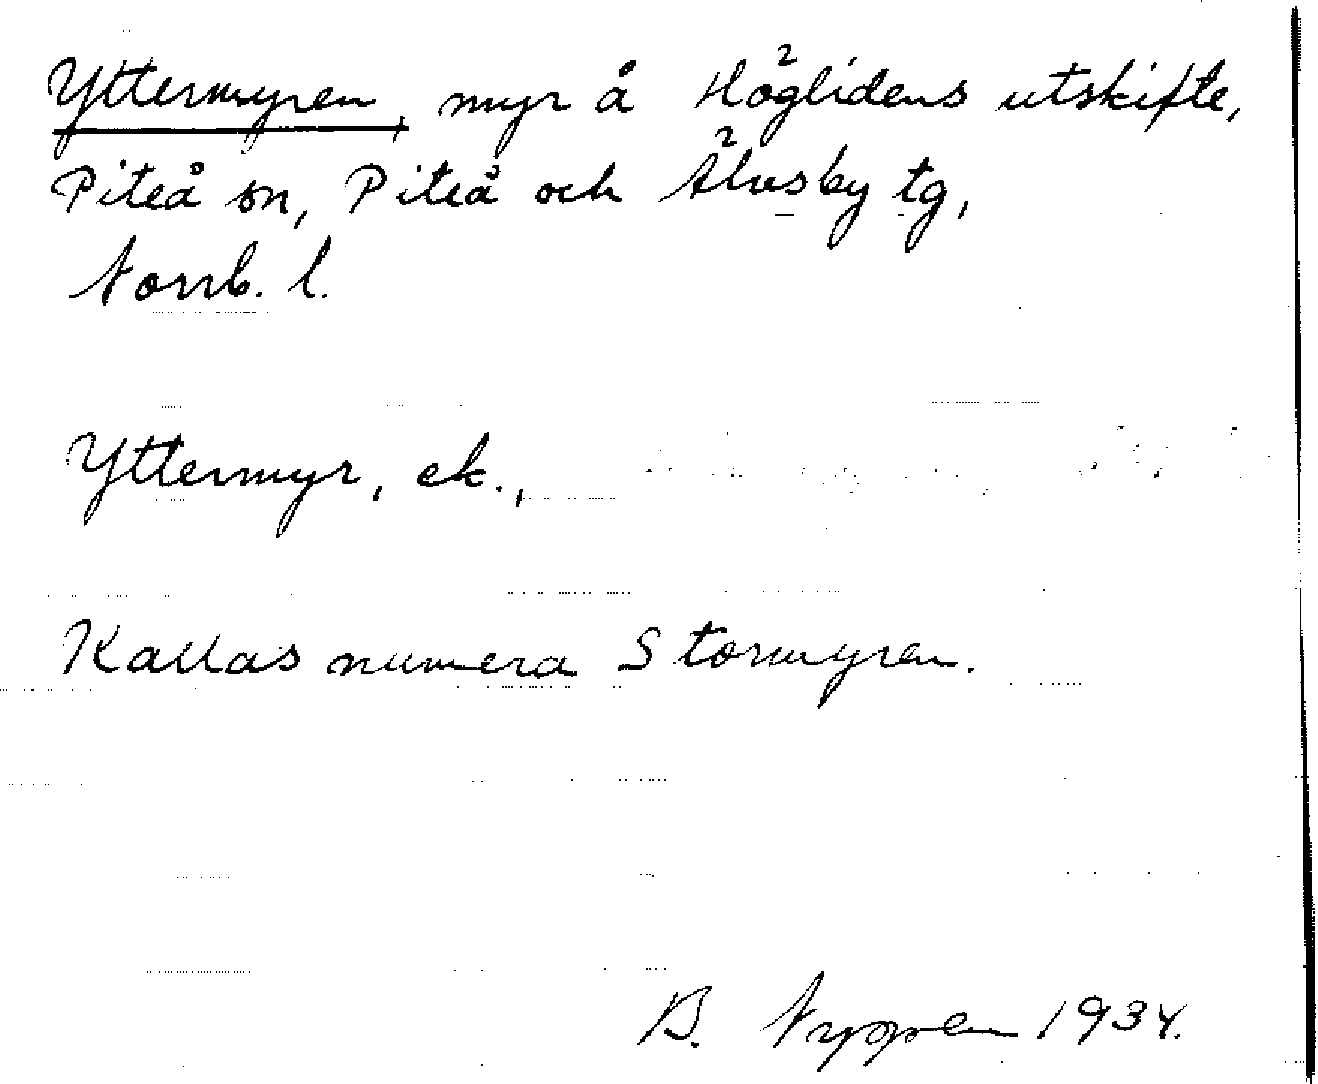 Yttermyren, myr å Höglidens utskifte,
Piteå sn, Piteå och Älvsby tg,
Norrb. l.
Yttermyr, ek.,
Kallas numera Stormyren.
B. Nyppen 1934.